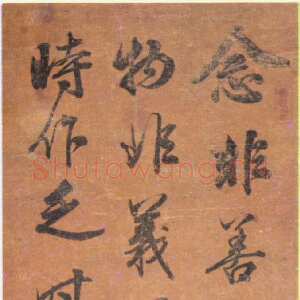 念非善
物非義
時作乏時
Shufawang